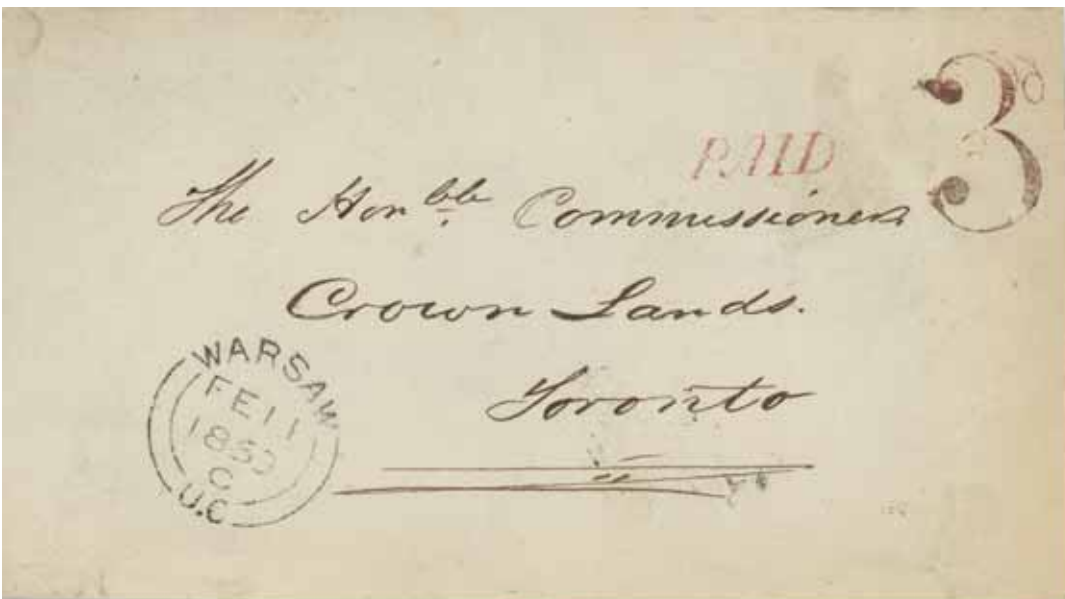 3
PAID
The Honble Commissioner
Crown Lands.
Toronto
WARSAW
FE 11
C
U.C